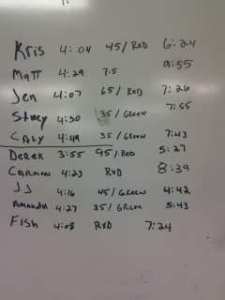 Kris 4:04 45/RXD 6:24
Matt 4:29 75 9:55
Jen 4:07 65/RXD 7:26
Stacy 4:30 35/GREEN 7:55
CALY 4:49 35/GREEN 7:43
DEREK 3:55 95/RXD 5:27
CARMAN 4:23 RXD 8:39
JJ 4:16 45/GREEN 4:42
AMANDA 4:27 35/GREEN 5:43
FISH 4:08 RXD 7:24